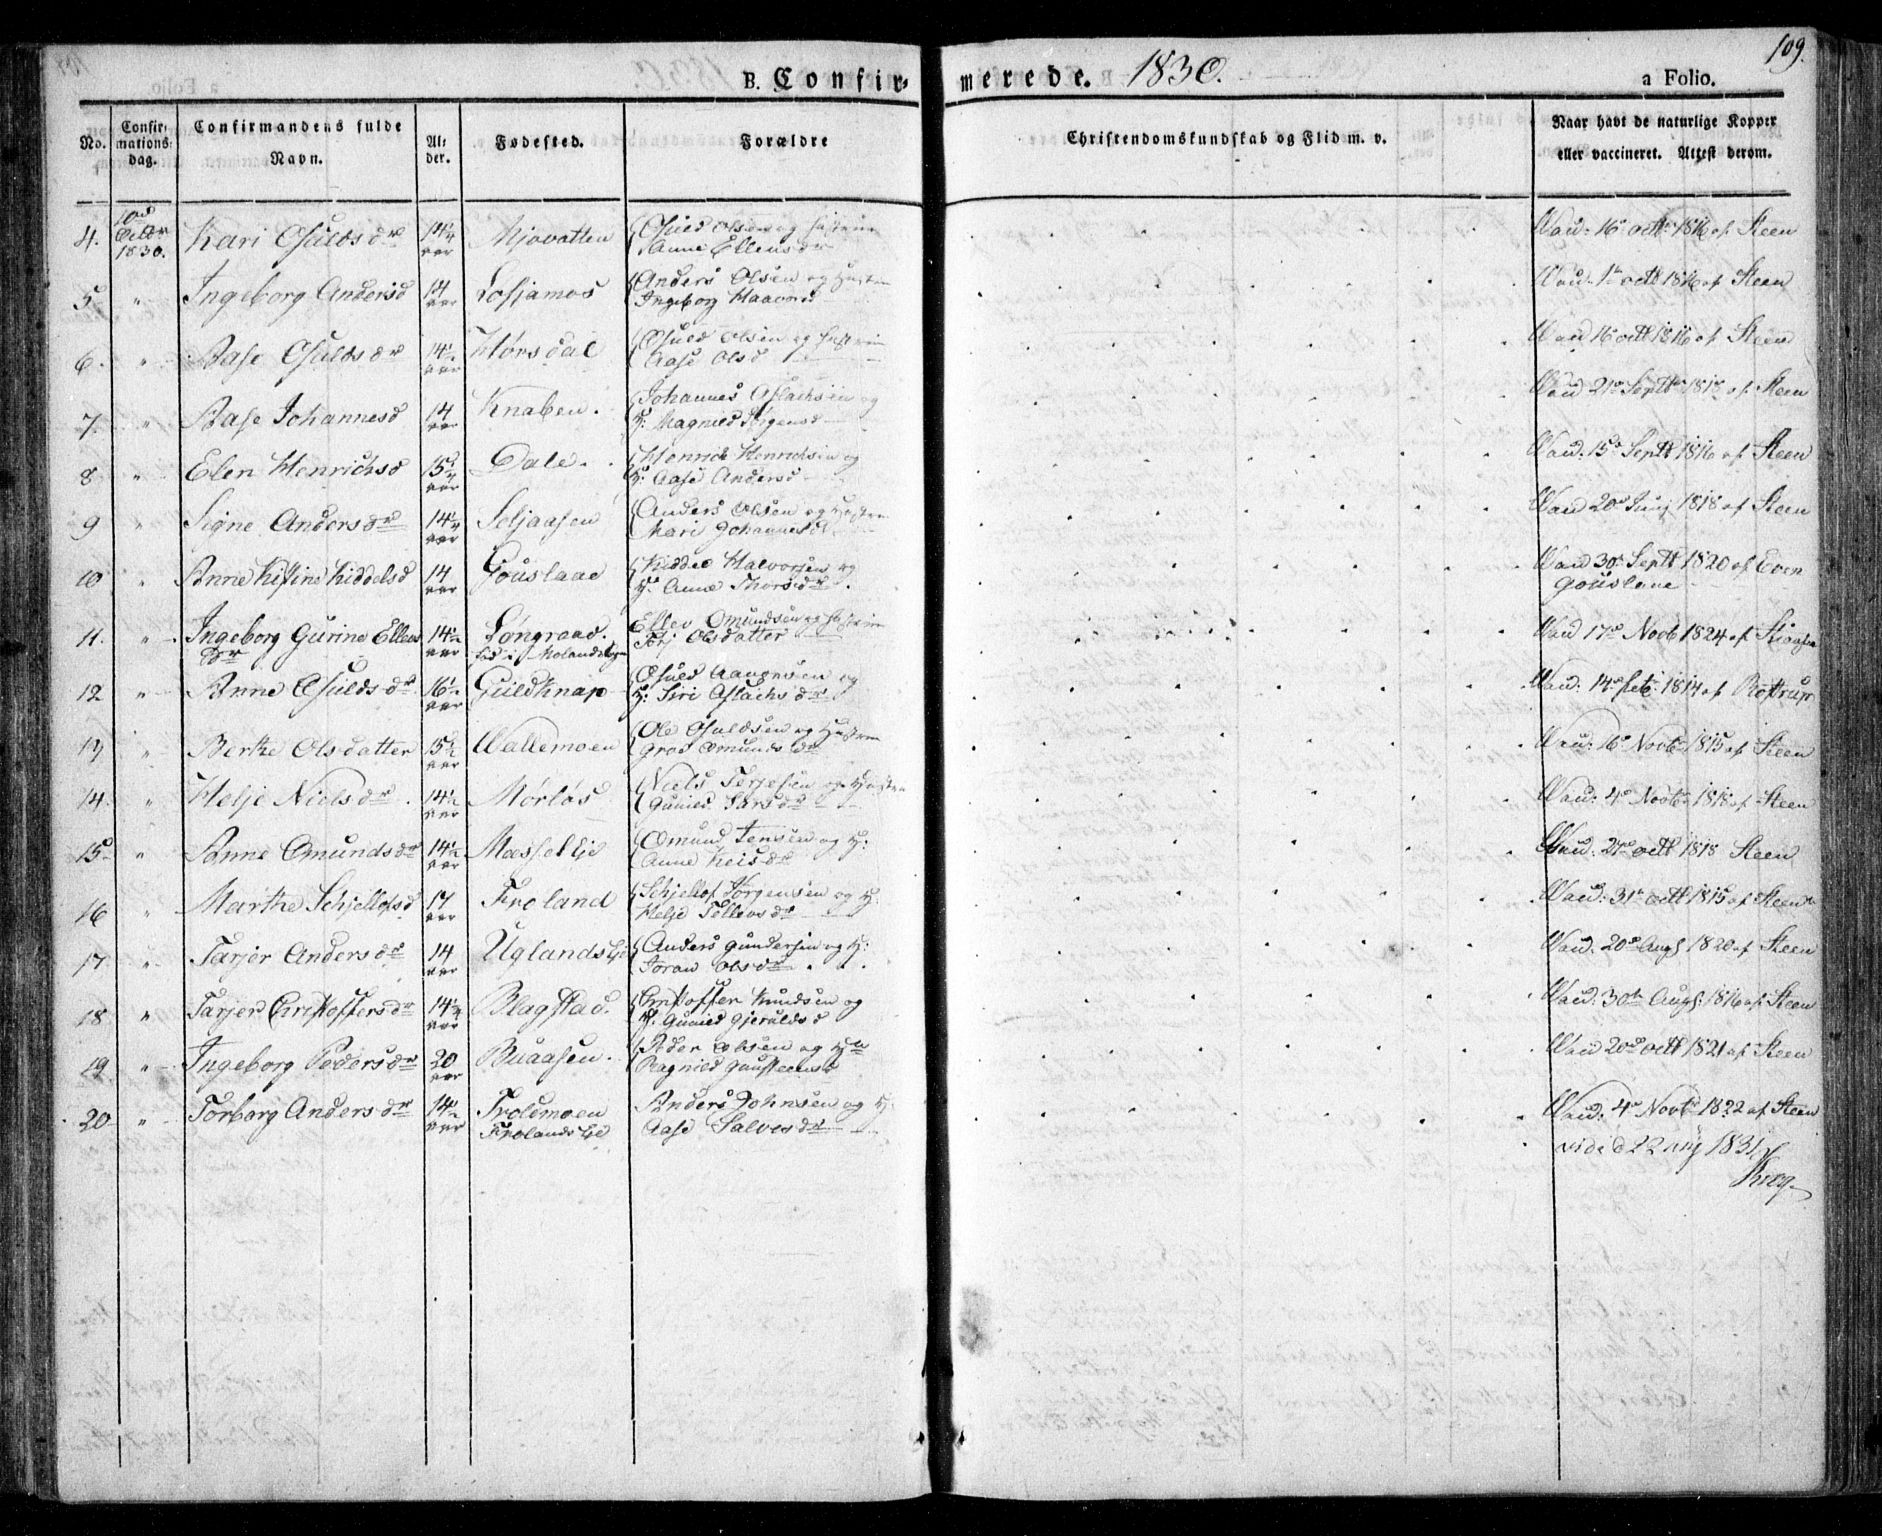 109.
B. Confirmerede. 1830.
a Folio.
No. Confirmationsdag. Confirmandens fulde Navn. Alder. Fødested. Forældre Christendomskundskab og Flid m. v. Naar havt de naturlige Kopper eller vaccineret. Attest derom.
4. 1830. Kari Osulds dr 14¼ aar Mjovatten Osuld Olsen og Hustrue Anne Ellens dr Vacc: 16 octb 1816 af Steen
5 " Ingeborg Andersd 14 aar Anders Olsen og Hustrue Ingeborg Haavors Vacc: 1 octb 1816 af Steen
6. " Aase Osulds dr 14½ aar Hørsdal Osuld Olsen og Hustrue Aase Ols d Vacc 16 octb 1816 af Steen
7. " Aase Johannesd 14 aar Knaben. Johannes Aslachsen og H: Magnild Jørgensd Vacc 21 Septbr 1818 af Steen
8 " Elen Henrichsd 15¼ aar Dale. Henrich Henrichsen og H: Aase Andersd Vacc: 15 Septb 1816 af Steen
9 " Signe Anders dr 14¼ aar Seljaasen Anders Olsen og Hustrue Mari Johannesd Vacc 20 Junj 1818 af Steen
10 " Anne Kistine Kiddelsd 14 aar Gouslaae Kiddel Halvorsen og H: Anne Thors dr Vacc 30 Septb 1820 af Even Gouslaae
11. " Ingeborg Gurine Ellens dr 14½ aar Løngraae. Ellev Omundsen og Hustrue Olsdatter Vacc 17 Novb 1824 af
12 " Anne Osulds dr 16½ aar Guildknap Osuld Aanonsen og H: Siri Aslachs dr Vacc: 14 1814 af Rostrup
13 " Berthe Olsdatter 15½ aar Wallemoen Ole Osuldsen og Hustrue Groe Omunds dr Vacc: 16 Novb 1815 af Steen
14. " Helje Niels dr. 14½ aar Mørfos Niels Terjesen og Hustrue Gunild Lars dr Vacc: 4 Novb 1818 af Steen
15 " Anne Omunds dr 14½ aar Messel Eje Omund Jensen og H: Anne Vacc: 21 octb 1818 Steen
16 " Marthe Schjellofsd 17 aar Froland Schjellof Jørgensen og H: Helje Tellevs dr Vacc: 31 octb 1815 af Steen
17 " Tarjer Anders dr 14 aar Uglands Eje Anders Gundersen og H: Joran Ols dr Vacc 20 Aug 1820 af Steen
18 " Tarjer Christoffers dr 14¼ aar Blagstad. Christoffer Knudsen og H. Guneld Gjerulds d Vacc: 30 Aug: 1816 af Steen
19. " Ingeborg Peders dr 20 aar Buaasen. Peder Olsen og H Ragnild Vacc 20 octb 1821 af Steen
20 " Torborg Anders dr 14½ aar Troldmoen Frolands Eje Anders Johnsen og H: Aase Salves dr Vacc: 4 Novb 1822 af Steen
vide d 22 1831